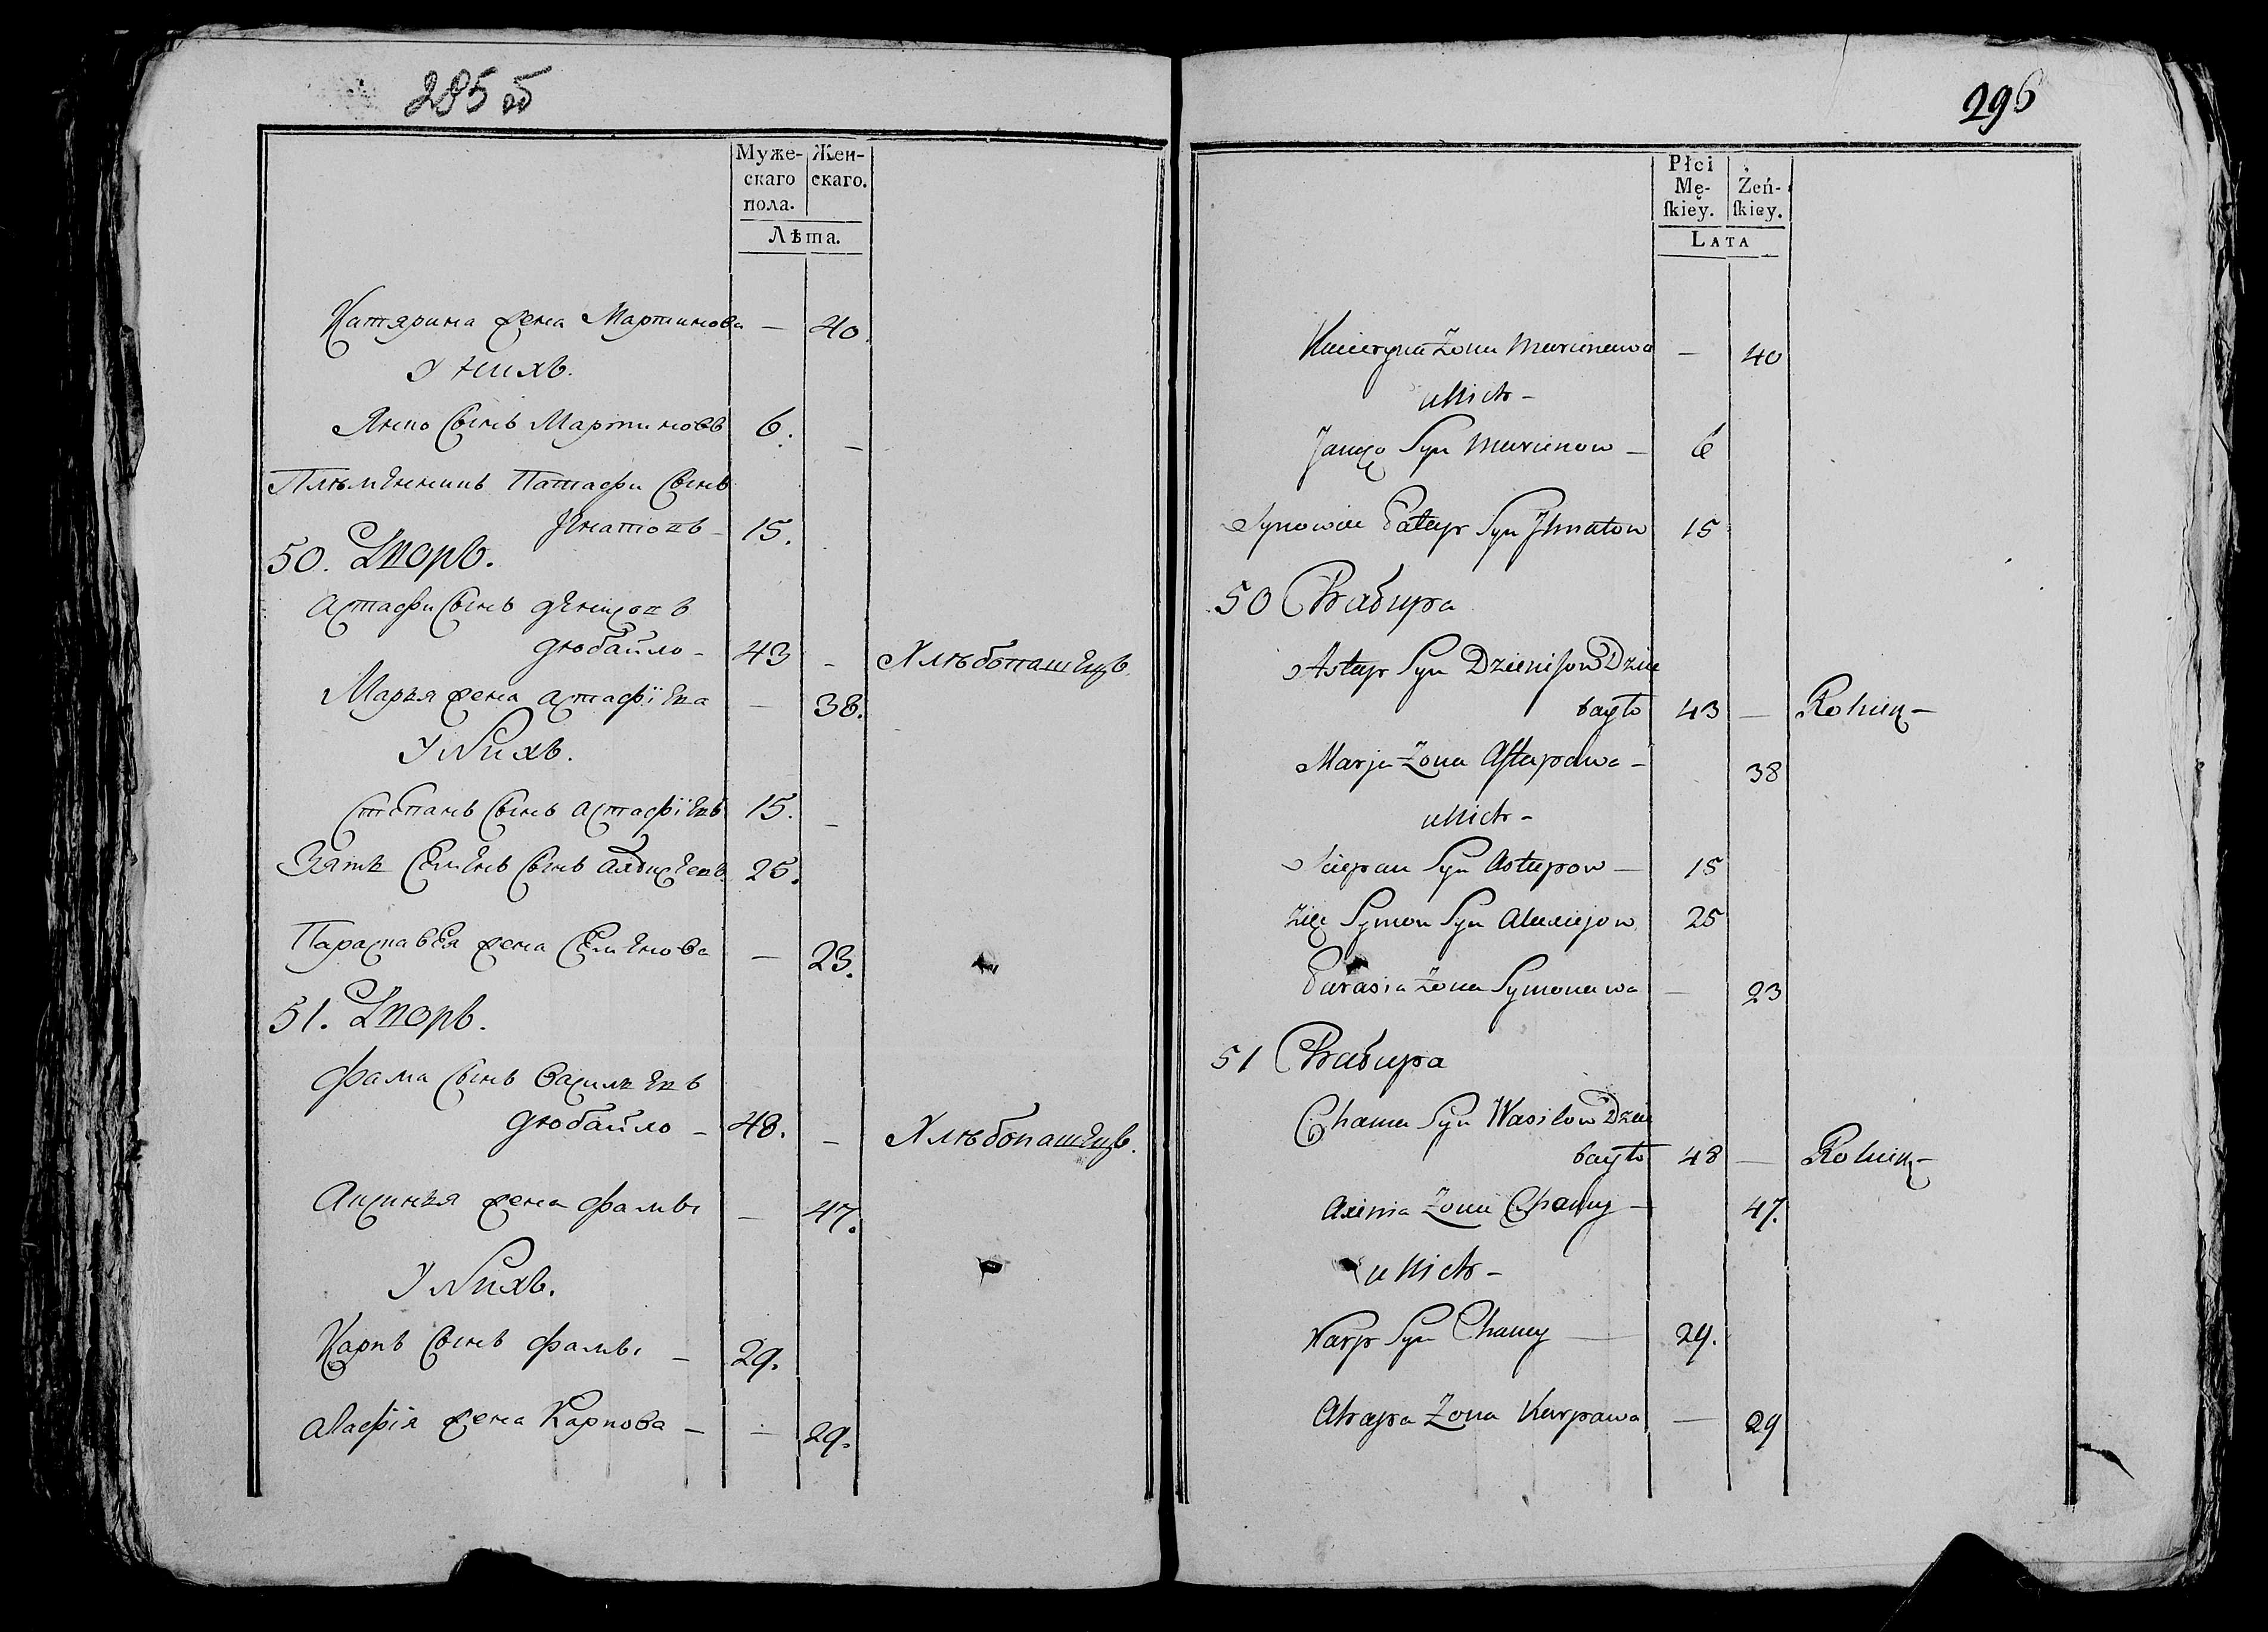 295 об
Муже- Жен-
скаго скаго.
пола.
Лѣта.
Катярина жена Мартинова — 40.
У нихъ.
Янко сынъ Мартиновъ 6. —
Племенникъ Патапфи сынъ
Игнатовъ — 15.
50. Дворъ.
Астафи сынъ Денисовъ
Дзюбайло — 43 — Хлѣбопашецъ.
Марья жена Астафіева — 38.
У нихъ.
Степанъ сынъ Астафіевъ 15. —
Зять Семенъ сынъ Алексеевъ 25.
Парасковея жена Семенова — 23.
51. Дворъ.
Фама сынъ Васильевъ
Дзюбайло — 48. — Хлѣбопашецъ.
Аксинья жена Фамы — 47.
У нихъ.
Карпъ сынъ Фамы — 29.
Агафія жена Карпова — — 29.
296
Płci
Mę- Żeń-
ſkiey. ſkiey.
LATA
Kacieryna Żona Marcinowa — 40
u Nich —
Janko Syn Marcinow — 6
Synowiec Patap Syn Ihnatow 15
50 Chałupa
Astap Syn Dzienisow Dziu
bayło 43 — Rolnik —
Marja Żona Astapowa — 38
u Nich —
Sciepan Syn Astapow — 15
Zięć Symon Syn Alexiejow 25
Parasia Żona Symonowa — 23
51 Chałupa
Chama Syn Wasilow Dziu
bayło 48 — Rolnik —
Axinia Żona Chamy — 47.
u Nich —
Karp Syn Chamy — 29.
Ahapa Żona Karpowa — 29